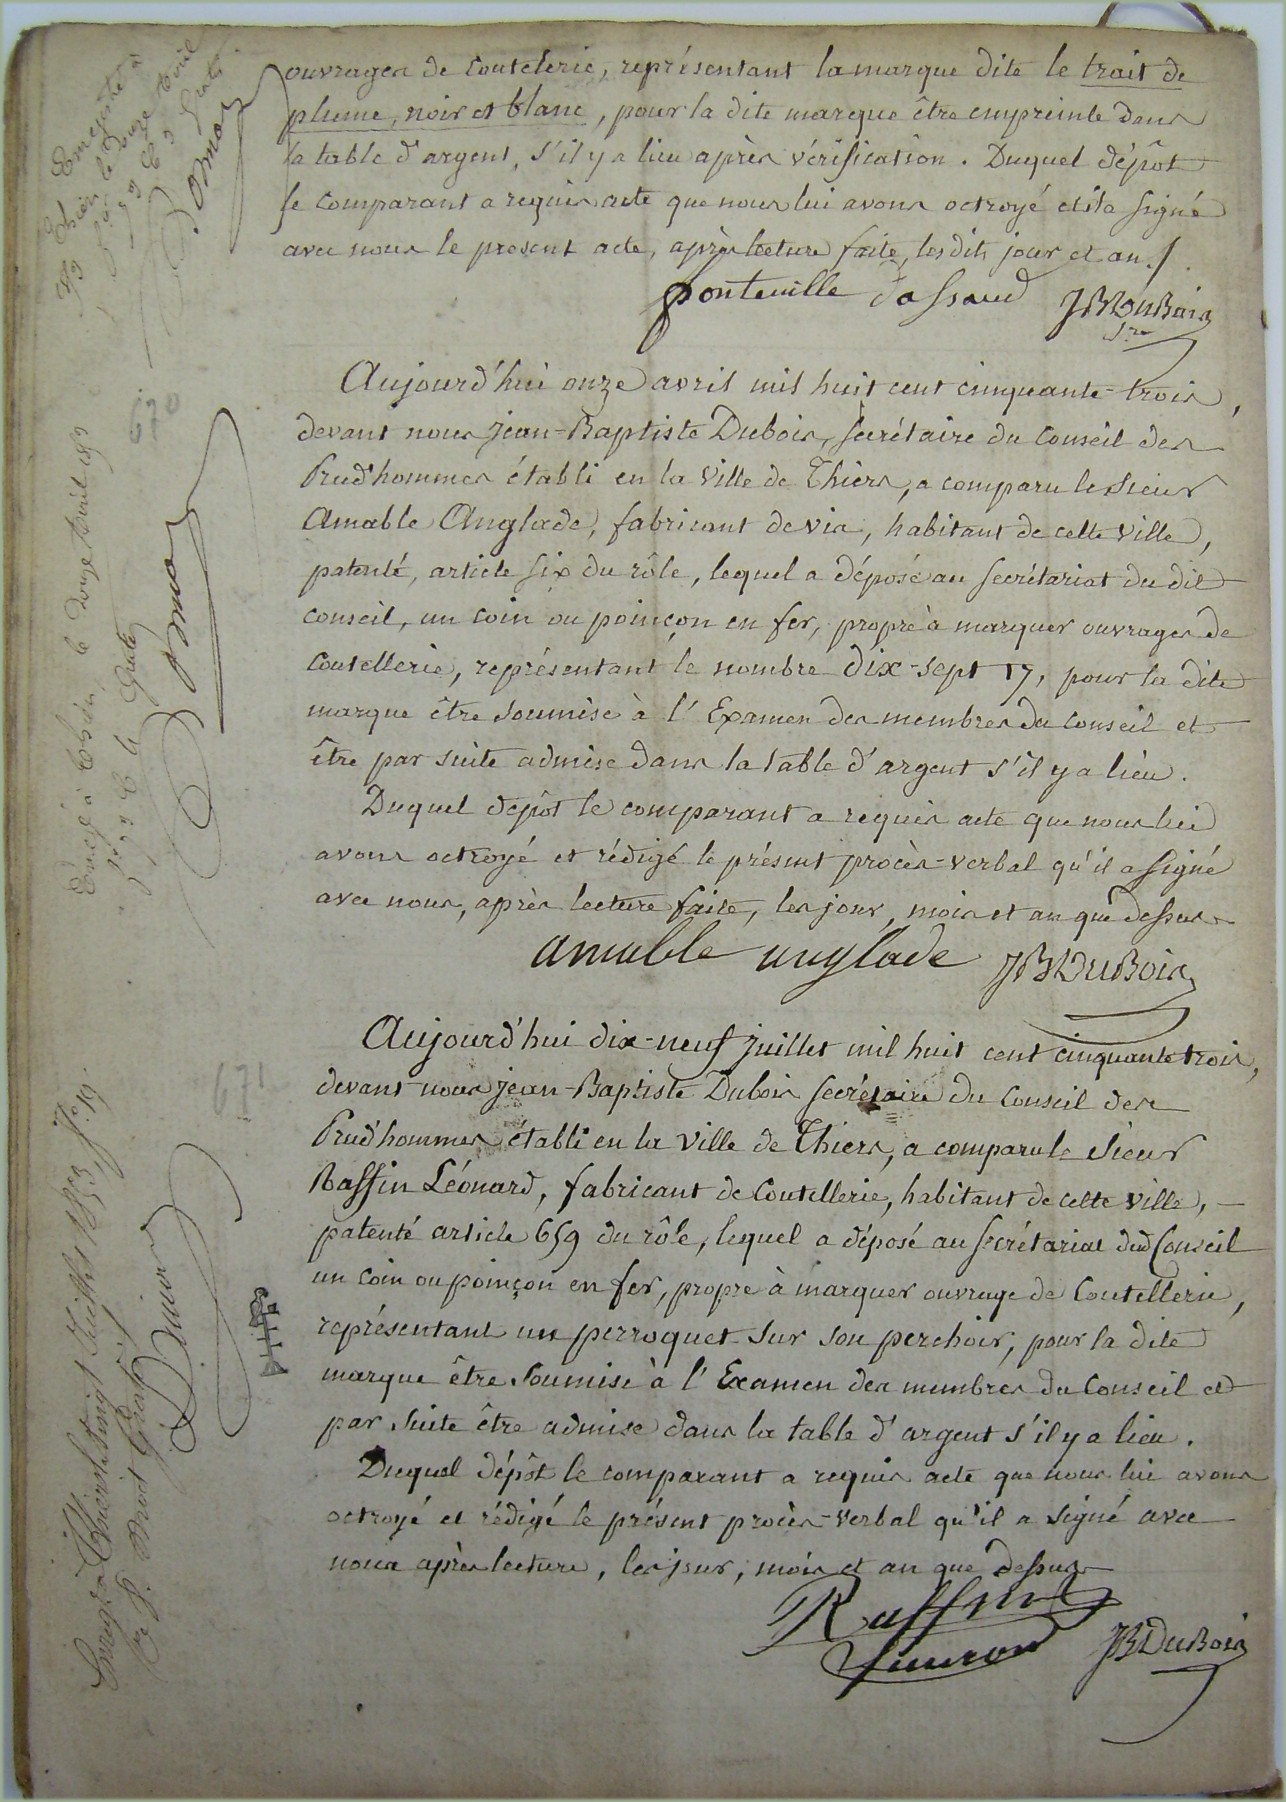 ouvrages de Coutelerie, représentant la marque dite le trait de
plume, noir et blanc, pour la dite marque être empreinte dans
la table d'argent, s'il y a lieu après vérification. Duquel dépôt
le comparant a requis acte que nous lui avons octroyé et il a signé
avec nous le present acte, après lecture faite, les dits jour et an./.
ponteuille dassaud JBDuBois
Sre
Aujourd'hui onze avril mil huit cent cinquante-trois,
devant nous Jean-Baptiste Dubois, Secrétaire du Conseil des
Prud'hommes établi en la Ville de Thiers, a comparu le Sieur
Amable Anglade, fabricant de vis, habitant de cette Ville,
patenté, article six du rôle, lequel a déposé au Secrétariat du dit
Conseil, un coin ou poinçon en fer, propre à marquer ouvrages de
Coutellerie, représentant le nombre dix-sept 17, pour la dite
marque être soumise à l'Examen des membres du Conseil et
être par suite admise dans la table d'argent s'il y a lieu.
Duquel dépôt le comparant a requis acte que nous lui
avons octroyé et rédigé le présent procès-verbal qu'il a signé
avec nous, après lecture faite, les jour, mois et an que dessus
amable anglade JBDuBois
Aujourd'hui dix-neuf Juillet mil huit cent cinquante trois,
devant nous Jean-Baptiste Dubois Secrétaire du Conseil des
Prud'hommes établi en la Ville de Thiers, a comparu le Sieur
Raffin Léonard, fabricant de Coutellerie, habitant de cette Ville,
patenté article 659 du rôle, lequel a déposé au Secrétariat dud Conseil
un coin ou poinçon en fer, propre à marquer ouvrage de Coutellerie,
représentant un perroquet sur son perchoir, pour la dite
marque être soumise à l'Examen des membres du Conseil et
par suite être admise dans la table d'argent s'il y a lieu.
Duquel dépôt le comparant a requis acte que nous lui avons
octroyé et rédigé le présent procès-verbal qu'il a signé avec
nous après lecture, les jour, mois et an que dessus
Raffin
Léonard JBDuBois
670
671